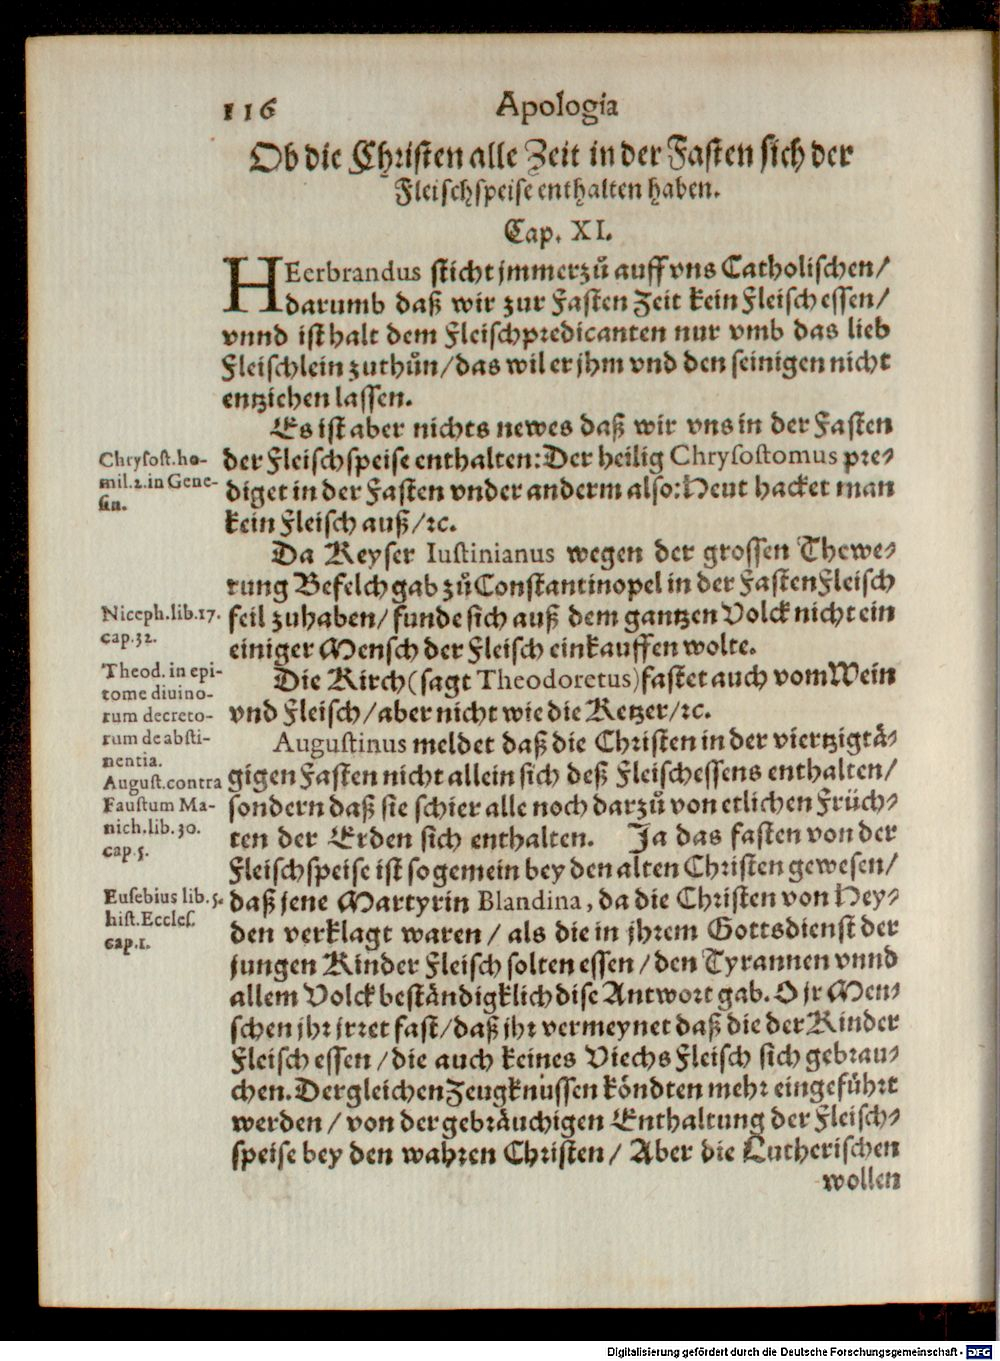 116 Apologia
Ob die Christen alle Zeit in der Fasten sich der
Fleischspeise enthalten haben.
Cap. XI.
HEerbrandus sticht jmmerzů auff vns Catholischen/
darumb daß wir zur Fasten Zeit kein Fleisch essen/
vnnd ist halt dem Fleischpredicanten nur vmb das lieb
Fleischlein zuthůn/das wil er jhm vnd den seinigen nicht
entziehen lassen.
Es ist aber nichts newes daß wir vns in der Fasten
der Fleischspeise enthalten: Der heilig Chrysostomus pre⸗
diget in der Fasten vnder anderm also: Heut hacket man
kein Fleisch auß/ꝛc.
Da Keyser Iustinianus wegen der grossen Thewe⸗
rung Befelch gab zů Constantinopel in der Fasten Fleisch
feil zuhaben/ funde sich auß dem gantzen Volck nicht ein
einiger Mensch der Fleisch einkauffen wolte.
Die Kirch (sagt Theodoretus) fastet auch vom Wein
vnd Fleisch/aber nicht wie die Ketzer/ꝛc.
Augustinus meldet daß die Christen in der viertzigtä⸗
gigen Fasten nicht allein sich deß Fleischessens enthalten/
sondern daß sie schier alle noch darzů von etlichen Früch⸗
ten der Erden sich enthalten. Ja das fasten von der
Fleischspeise ist so gemein bey den alten Christen gewesen/
daß jene Martyrin Blandina, da die Christen von Hey⸗
den verklagt waren/ als die in jhrem Gottsdienst der
jungen Kinder Fleisch solten essen/den Tyrannen vnnd
allem Volck beständigklich dise Antwort gab. O jr Men⸗
schen jhr jrret fast/daß jhr vermeynet daß die der Kinder
Fleisch essen/die auch keines Viechs Fleisch sich gebrau⸗
chen. Dergleichen Zeugknüssen köndten mehr eingeführt
werden/ von der gebräuchigen Enthaltung der Fleisch⸗
speise bey den wahren Christen/ Aber die Lutherischen
wollen
Chrysost. ho-
mil. 2. in Gene-
sin.
Niceph. lib. 17.
cap. 32.
Theod. in epi-
tome diuino-
rum decreto-
rum de absti-
nentia.
August. contra
Faustum Ma-
nich. lib. 30.
cap. 5.
Eusebius lib. 5.
hist. Eccles.
cap. 1.
Digitalisierung gefördert durch die Deutsche Forschungsgemeinschaft - DFG